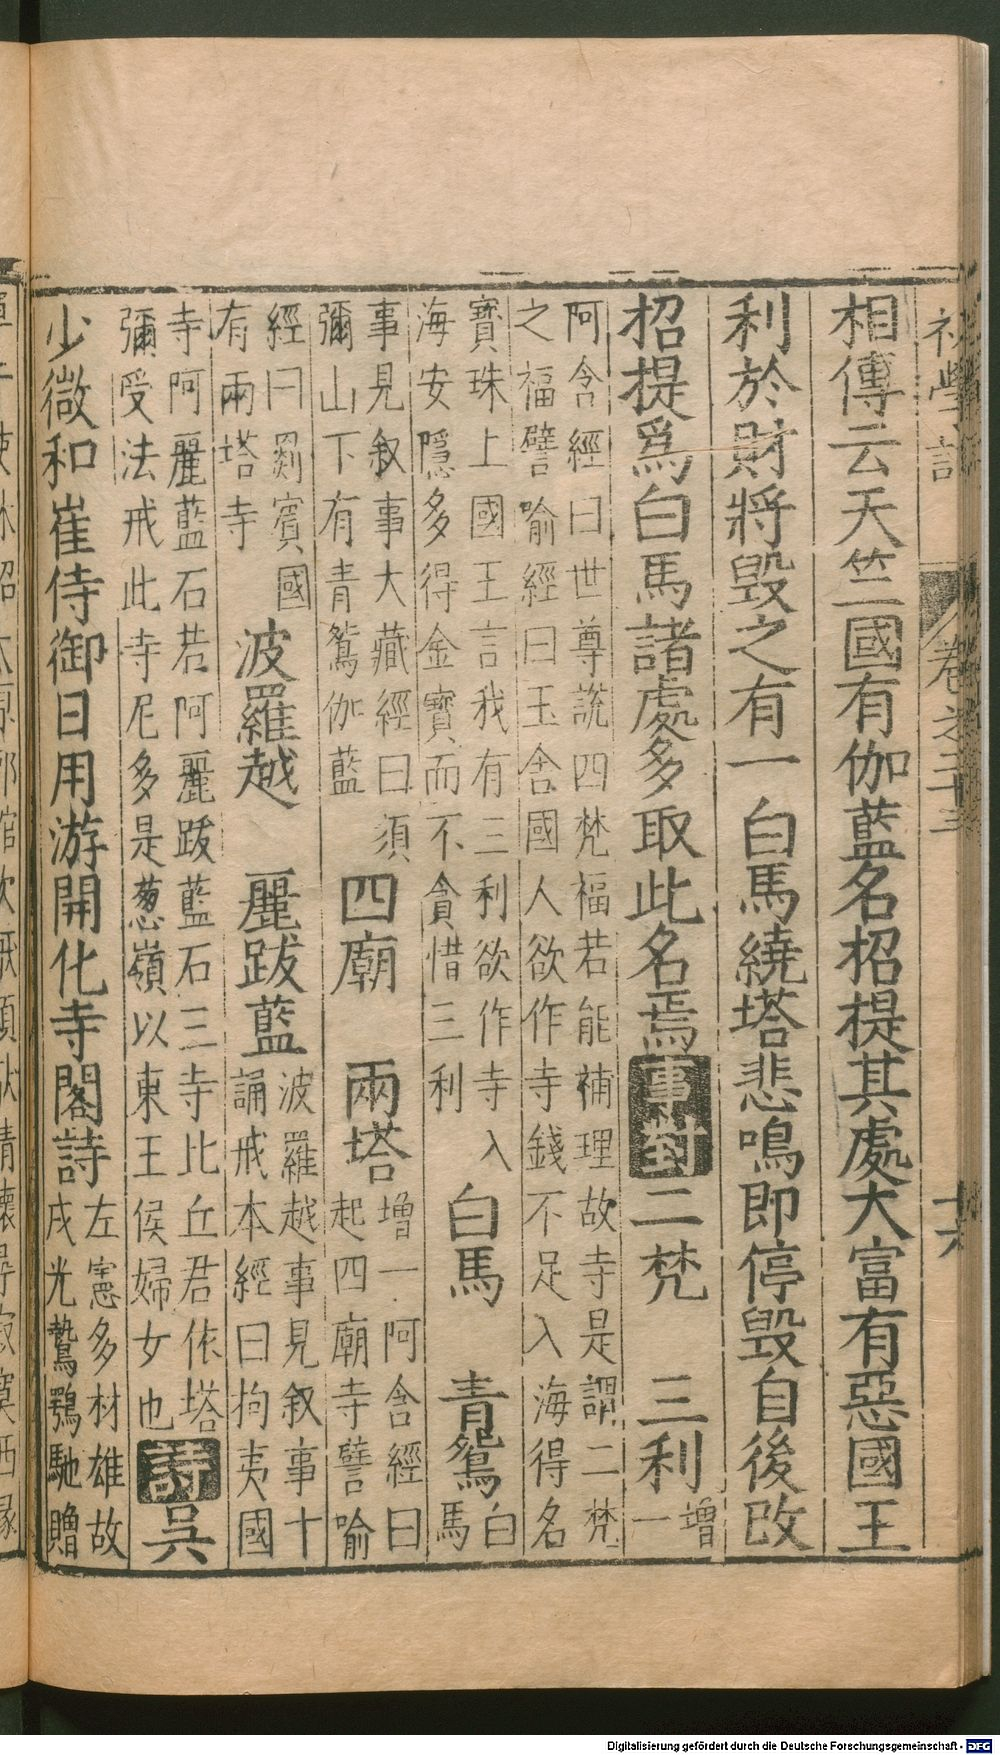 初學記 卷之二十三 十六
相傳云天竺國有伽藍名招提其處大富有惡國王
利於財將毀之有一白馬繞塔悲鳴即停毀自後改
招提爲白馬諸處多取此名焉 事對 二梵 三利 增
一
阿含經曰世尊說四梵福若能補理故寺是謂二梵
之福譬喻經曰玉舍國人欲作寺錢不足入海得名
寶珠上國王言我有三利欲作寺入
海安隱多得金寶而不貪惜三利
白馬 青鴛 白
馬
事見敘事大藏經曰須
彌山下有青鴛伽藍
四廟 兩塔
增一阿含經曰
起四廟寺譬喻
經曰罽賓國
有兩塔寺
波羅越 麗跋藍
波羅越事見敘事十
誦戒本經曰拘夷國
寺阿麗藍石若阿麗跋藍石三寺比丘君依塔
彌受法戒此寺尼多是葱嶺以東王侯婦女也
詩 吳
少微和崔侍御日用游開化寺閣詩
左憲多材雄故
戍光鷙鶚馳贈
Digitalisierung gefördert durch die Deutsche Forschungsgemeinschaft - DFG